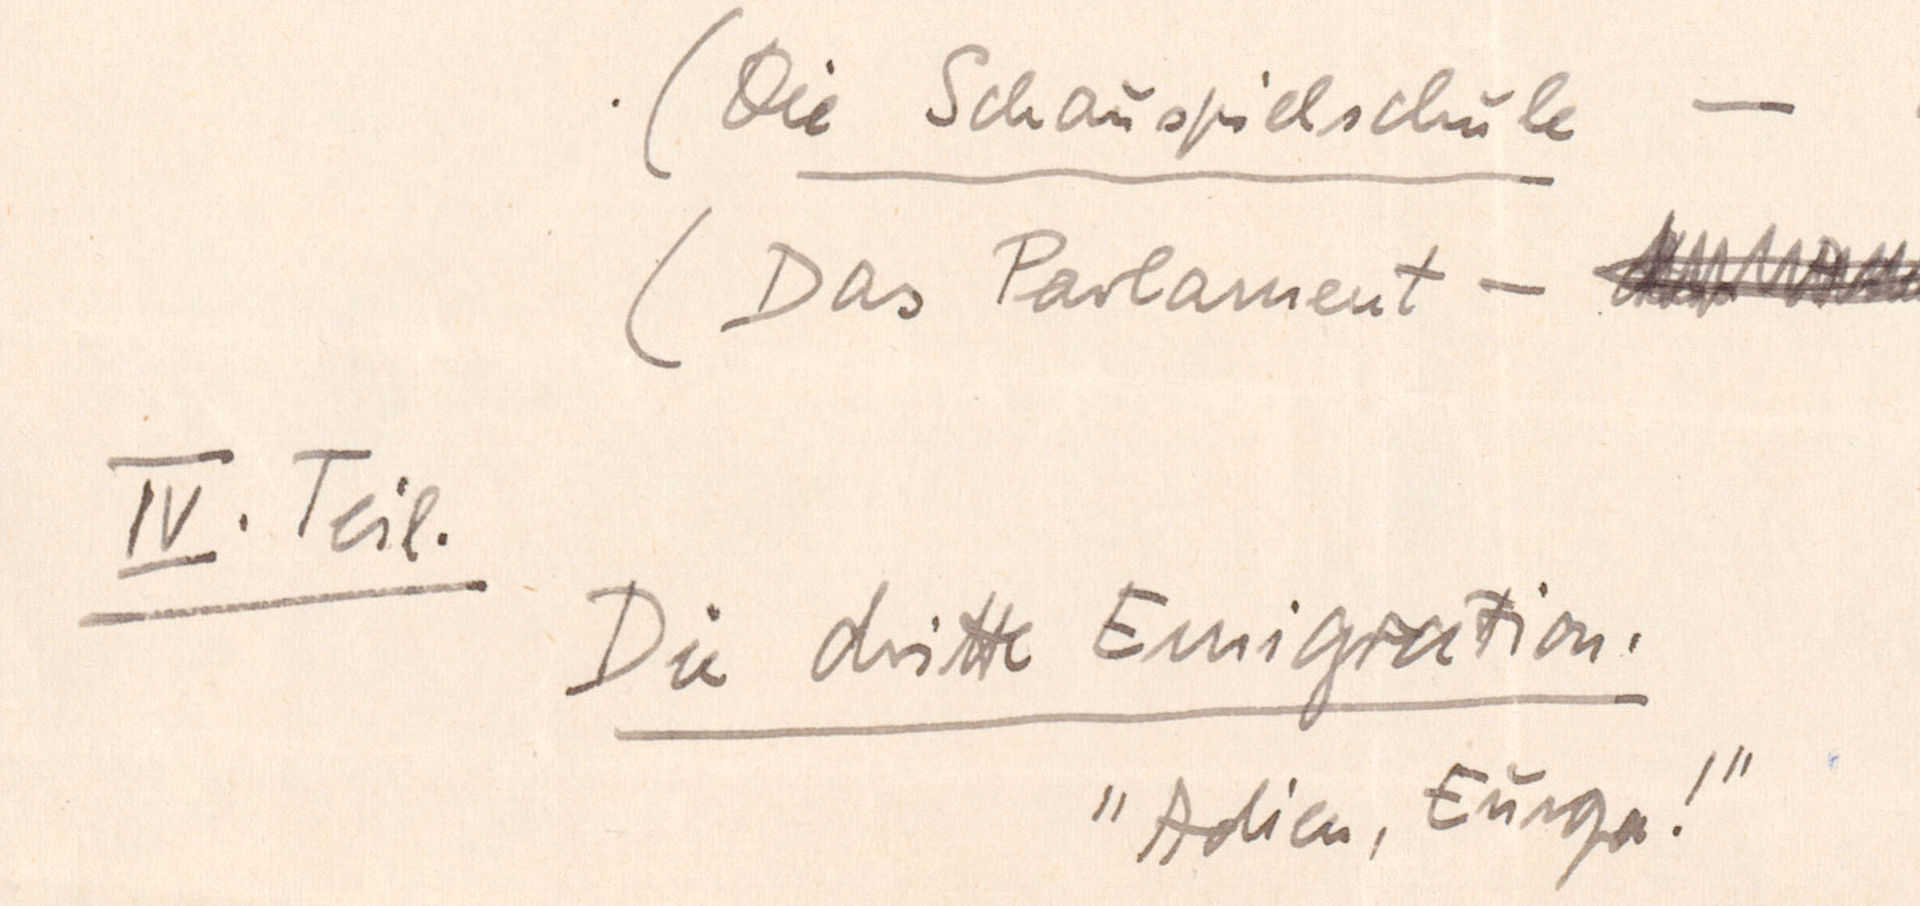 (Die Schauspielschule —
(Das Parlament —
IV. Teil.
Die dritte Emigration.
"Adieu, Europa!"